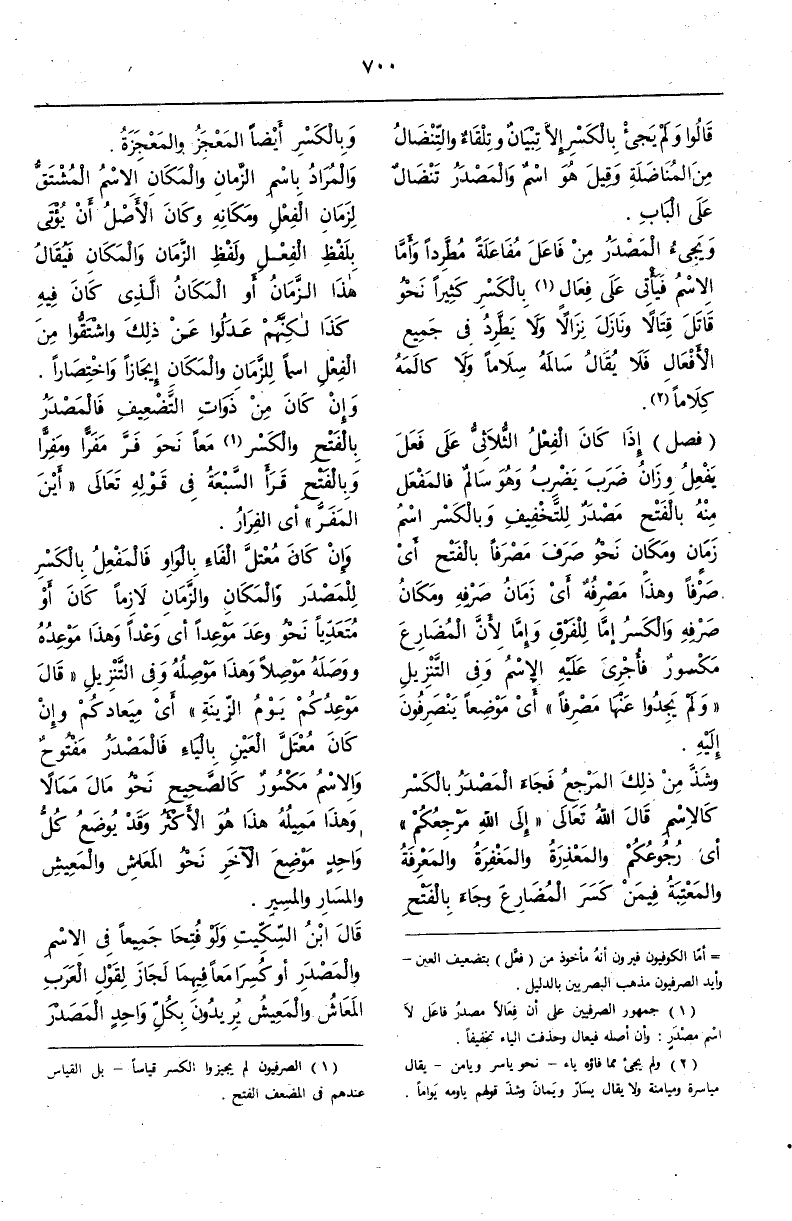 ٧٠٠
قَالُوا وَلَمْ يَجِئْ بِالْكَسْرِ إِلاَّ تِبْيَانٌ وتِلْقَاءٌ والتِّنْضَالُ
مِنَ المُنَاضَلَةِ وَقِيلَ هُوَ اسْمٌ وَالْمَصْدَرُ تَنْضَالٌ
عَلَى الْبَابِ .
وَيَجِىءُ الْمَصْدَرُ مِنْ فَاعَلَ مُفَاعَلَةً مُطَّرِداً وَأَمَّا
الاِسْمُ فَيَأْتِى عَلَى فِعَالٍ (١) بِالْكَسْرِ كَثِيراً نَحْوُ
قَاتَلَ قِتَالًا ونَازَلَ نِزَالًا وَلَا يَطَّرِدُ فِى جَمِيعِ
الْأَفْعَالِ فَلَا يُقَالُ سَالَمَهُ سِلَاماً وَلَا كالَمَهُ
كِلَاماً (٢) .
( فصل ) إِذَا كَانَ الْفِعْلُ الثُّلَاثِىُّ عَلَى فَعَلَ
يَفْعِلُ وِزَانُ ضَرَبَ يَضْرِبُ وَهُوَ سَالِمٌ فالمَفْعَل
مِنْهُ بِالْفَتْحِ مَصْدَرٌ لِلتَّخْفِيفِ وَبِالْكَسْرِ اسْمُ
زَمَانٍ ومَكَانٍ نَحْوُ صَرَفَ مَصْرَفاً بالْفَتْحِ أَىْ
صَرْفاً وهذَا مَصْرِفُهُ أَىْ زَمَانُ صَرْفِهِ ومَكَانُ
صَرْفِهِ وَالْكَسْرُ إِمَّا لِلْفَرْقِ وَإِمَّا لِأَنَّ الْمُضَارِعَ
مَكْسُورٌ فَأُجْرِىَ عَلَيْهِ الاِسْمُ وَفِى التَّنْزِيلِ
« وَلَمْ يَجِدُوا عَنْهَا مَصْرِفاً » أَىْ مَوْضِعاً يَنْصَرِفُونَ
إِلَيْهِ .
وشَذَّ مِنْ ذلِكَ المَرْجِعُ فَجَاءَ الْمَصْدَرُ بِالْكَسْرِ
كَالاِسْمِ قَالَ اللهُ تَعَالَى « إِلَى اللهِ مَرْجِعُكُمْ »
أىْ رُجُوعُكُمْ والْمَعْذِرَةُ والمَغْفِرَةُ والمَعْرِفَةُ
والمَعْتِبَةُ فِيمَنْ كَسَرَ الْمُضَارِعَ وجَاءَ بِالْفَتْحِ
= أمّا الكوفيون فيرون أنهُ مأخوذ من ( فعَّل ) بتضعيف العين –
وأيد الصرفيون مذهب البصريين بالدليل .
( ١ ) جمهور الصرفيين على أن فِعَالاً مصدرُ فاعَل لاَ
اسْم مصْدَرٍ : وأن أصله فيعال وحذفت الياء تخفيفاً .
( ٢ ) ولم يجئ مما فاؤه ياء – نحو ياسر ويامن – يقال
مياسرة وميامنة ولا يقال يِسَارٌ ويَمانٌ وشذّ قولهم ياومه يَواماً .
وَبِالْكَسْرِ أَيْضاً المَعْجَزُ والمَعْجَزَةُ .
وَالْمُرَادُ بِاسْمِ الزَّمانِ والمَكَانِ الاِسْمُ الْمُشْتَقُّ
لِزَمَانِ الْفِعْلِ ومَكَانِهِ وكَانَ الْأَصْلُ أَنْ يُؤْتَى
بِلَفْظِ الْفِعْلِ ولَفْظِ الزَّمَانِ وَالْمَكَانِ فَيُقَالُ
هٰذَا الزَّمَانُ أَوِ الْمَكَانُ الَّذِى كَانَ فِيهِ
كَذَا لٰكِنَّهُمْ عَدَلُوا عَنْ ذلِكَ واشْتَقُّوا مِنَ
الْفِعْلِ اسماً لِلزَّمَانِ والْمَكَانِ إِيجَازاً وَاخْتِصَاراً .
وَإِنْ كَانَ مِنْ ذَوَاتِ التَّضْعِيفِ فَالْمَصْدَرُ
بِالْفَتْحِ والْكَسْرِ (١) مَعاً نَحوَ فَرَّ مَفَرًّا ومَفِرًّا
وَبِالْفَتْحِ قَرَأَ السَّبْعَةُ فِى قَوْلِهِ تَعَالَى « أَيْنَ
المَفَرُّ » أى الفِرَارُ .
وَإِنْ كَانَ مُعْتَلَّ الْفَاءِ بِالْوَاوِ فَالْمَفْعِلُ بِالْكَسْرِ
لِلْمَصْدَرِ وَالْمَكَانِ والزَّمَانِ لَازِماً كَانَ أَوْ
مُتَعَدِّياً نَحْوُ وعَدَ مَوْعِداً أى وَعْداً وَهذَا مَوْعِدُهُ
ووَصَلَهُ مَوْصِلاً وهَذَا مَوْصِلُهُ وَفِى التَّنْزِيلِ « قَالَ
مَوْعِدُكُمْ يَوْمُ الزِّينَةِ » أَىْ مِيعادكُمْ وإِنْ
كَانَ مُعْتَلَّ الْعَيْنِ بِالْيَاءِ فَالْمَصْدَرُ مَفْتُوحٌ
وَالاِسْمُ مَكْسُورٌ كَالصَّحِيحِ نَحْوُ مَالَ مَمَالًا
وَهٰذَا مَمِيلُهُ هذَا هُوَ الْأَكْثَرُ وَقَدْ يُوضَعُ كُلُّ
وَاحِدٍ مَوْضِعَ الْآخَرِ نَحْوُ المَعَاشِ والْمَعِيشِ
والمَسَارِ والمَسِيرِ .
قَالَ ابْنُ السِّكِّيتِ وَلَوْ فُتِحَا جَمِيعاً فِى الاِسْمِ
والْمَصْدَرِ أو كُسِرَا مَعاً فِيهِمَا لَجَازَ لِقَوْلِ الْعَرَبِ
الْمَعَاشُ والْمَعِيشُ يُرِيدُونَ بِكُلِّ وَاحِدٍ الْمَصْدَرَ
( ١ ) الصرفيون لم يجيزوا الكسر قياساً – بل القياس
عندهم فى المضعف الفتح .